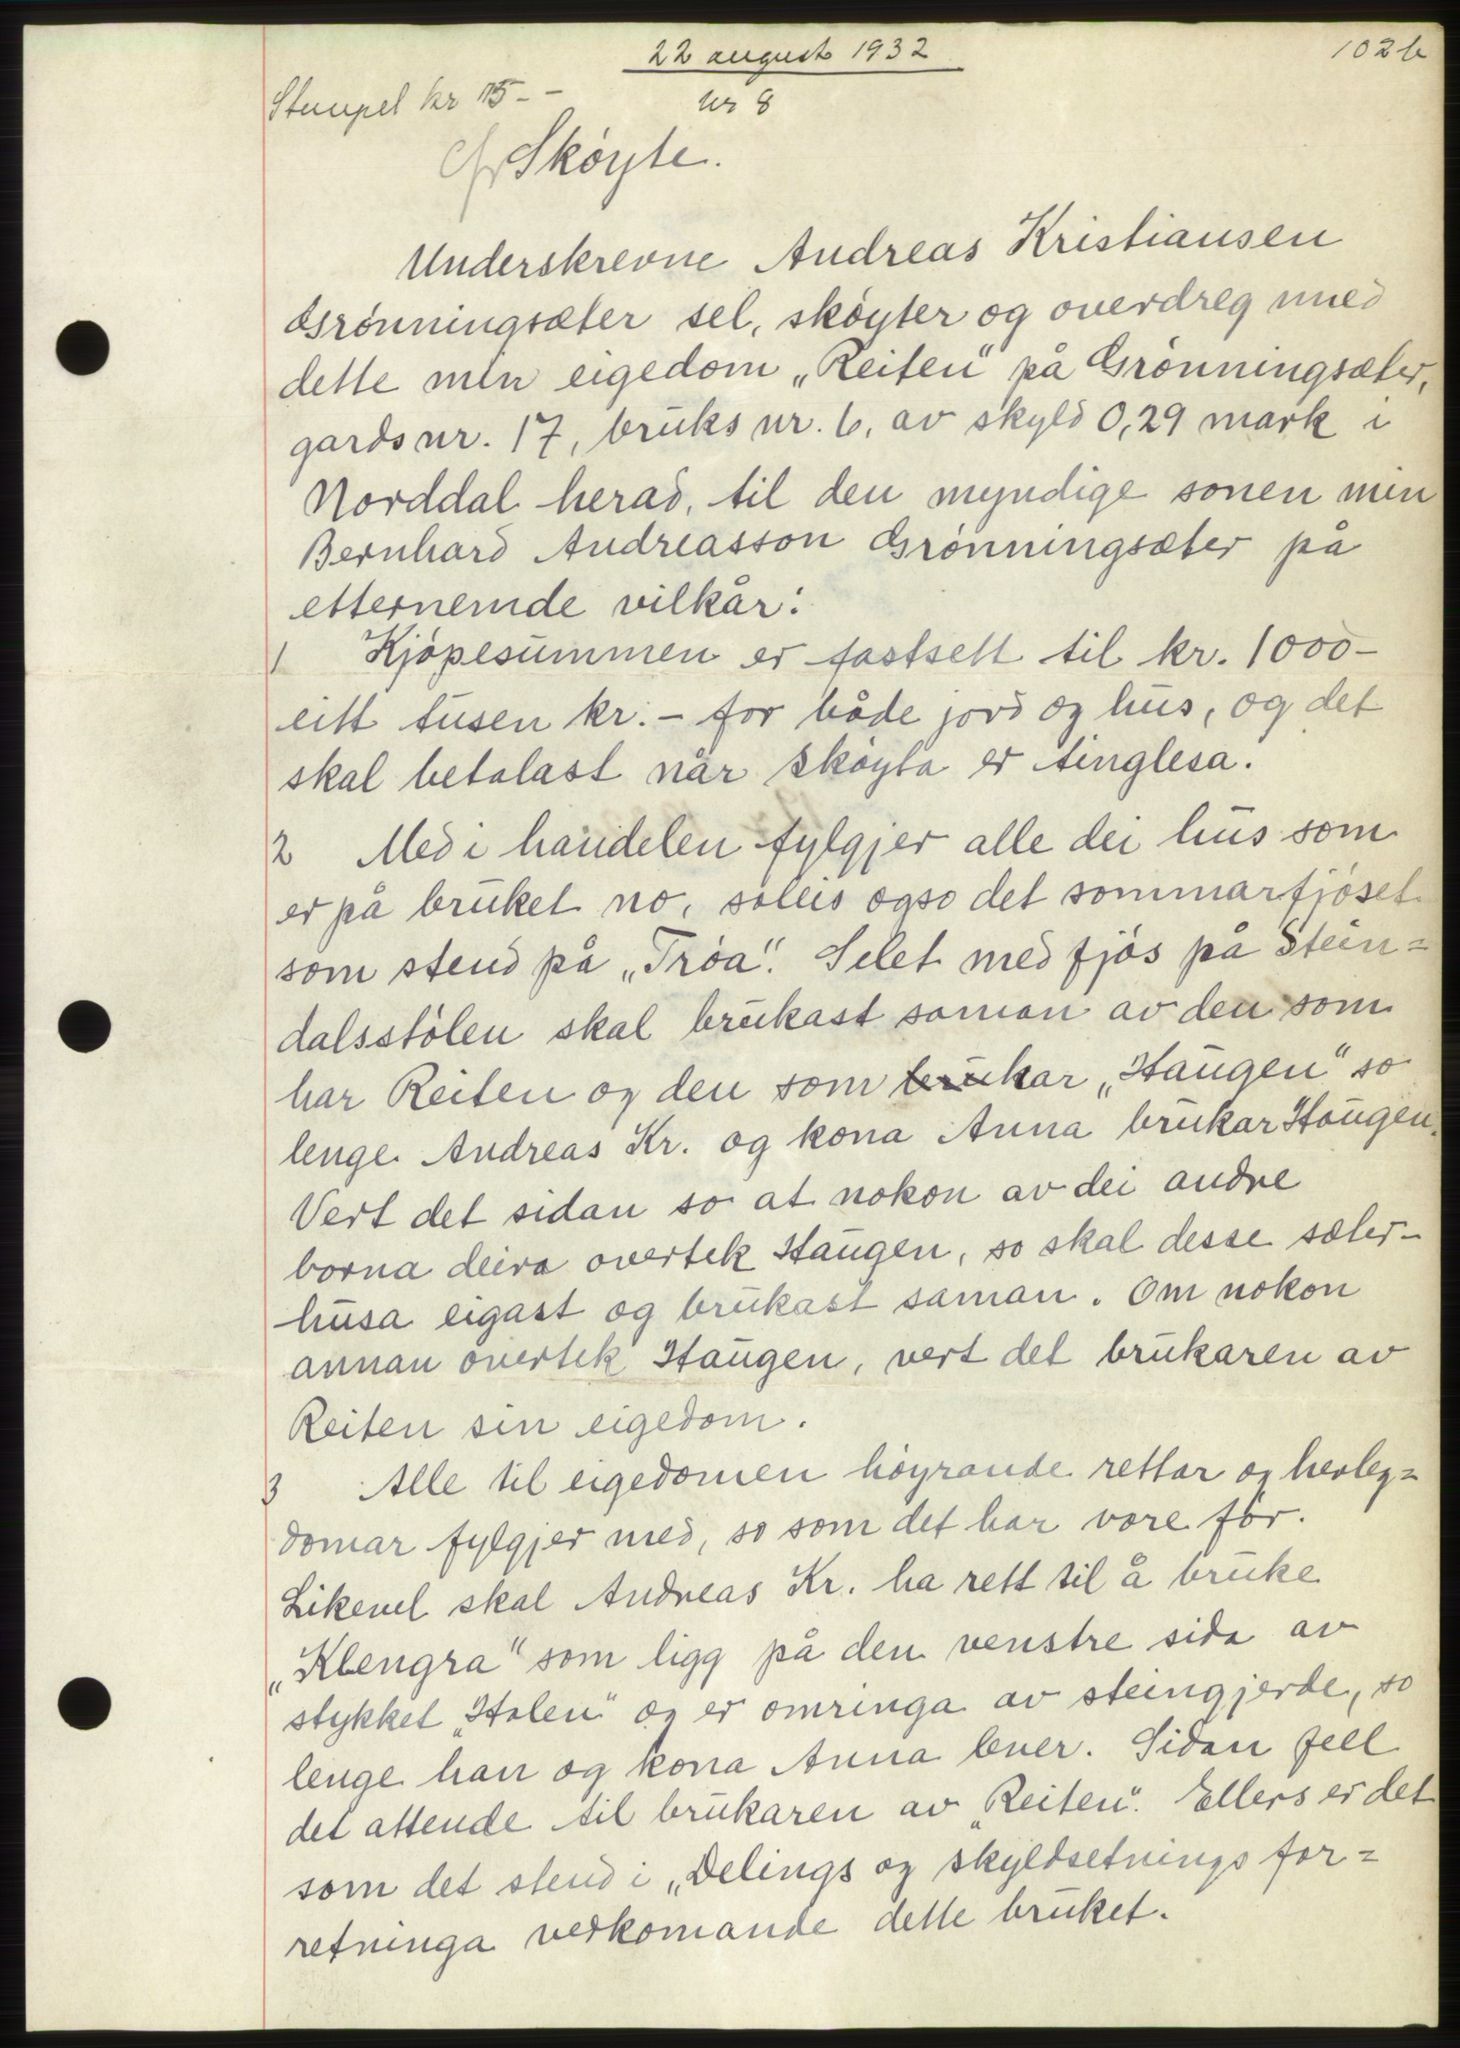 22 august 1932
1026
Stempel kr 75 - -
Nr 8
Skøyte.
Underskrevne Andreas Kristiansen
Grønningsæter sel, skøyter og overdreg med
dette min eigedom „Reiten“ på Grønningsæter,
gardsnr. 17, bruksnr. 6, av skyld 0,29 mark i
Norddal herad, til den myndige sonen min
Bernhard Andreasson Grønningsæter på
etternemde vilkår:
1 Kjøpesummen er fastsett til kr. 1000-
eitt tusen kr. - for både jord og hus, og det
skal betalast når skøyta er tinglesa.
2 Med i handelen fylgjer alle dei hus som
er på bruket no, soleis ogso det sommarfjøset
som stend på „Trøa“. Selet med fjøs på Stein=
dalsstølen skal brukast saman av den som
har Reiten og den som brukar „Haugen“ so
lenge Andreas Kr. og kona Anna brukar Haugen.
Vert det sidan so at nokon av dei andre
borna deira overtek Haugen, so skal desse sæter-
husa eigast og brukast saman. Om nokon
annan overtek Haugen, vert det brukaren av
Reiten sin eigedom.
3 Alle til eigedomen høyrande rettar og herleg=
domar fylgjer med, so som det har vore før.
Likevel skal Andreas Kr. ha rett til å bruke
„Klengra“ som ligg på den venstre sida av
stykket „Holen“ og er omringa av steingjerde, so
lenge han og kona Anna lever. Sidan fell
det attende til brukaren av „Reiten“. Ellers er det
som det stend i „Delings og skyldsetnings for=
retninga vedkomande dette bruket.